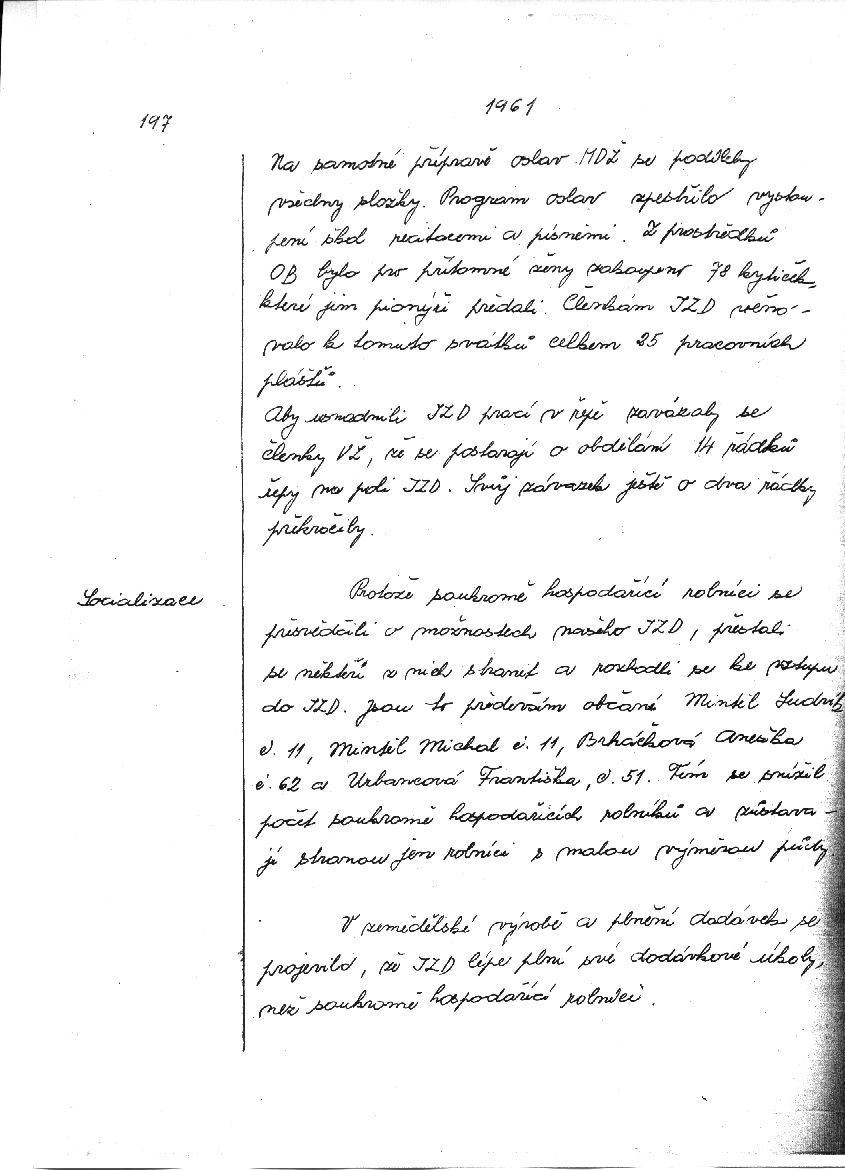 1961
197
Na samotné přípravě oslav MDŽ se podílely
všechny složky. Program oslav zpestřilo vystou-
pení škol recitacemi a písněmi. Z prostředků
OB bylo pro přítomné ženy zakoupeno 78 kytiček,
které jim pionýři předali. Členkám JZD věno-
valo k tomuto svátku celkem 25 pracovních
plášťů.
Aby usnadnili JZD prací v řepě zavázaly se
členky VŽ, že se postarají o obdělání 14 řádků
řepy na poli JZD. Svůj závazek ještě o dva řádky
překročily.
Socializace
Protože soukromě hospodařící rolníci se
přesvědčili o možnostech našeho JZD, přestali
se někteří z nich stranit a rozhodli se ke vstupu
do JZD. Jsou to především občané Mintěl Ludvík
č. 11, Mintěl Michal č. 11, Brháčková Anežka
č. 62 a Urbancová Františka, č. 51. Tím se snížil
počet soukromě hospodařících rolníků a zůstava-
jí stranou jen rolníci s malou výměrou půdy.
V zemědělské výrobě a plnění dodávek se
projevilo, že JZD lépe plní své dodávkové úkoly,
než soukromě hospodařící rolníci.